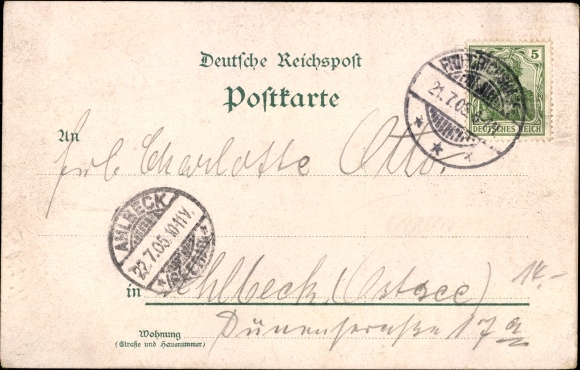 Deutsche Reichspost
Postkarte
5
DEUTSCHES REICH
21.7.05
An
Charlotte Otto
AHLBECK
22.7.05.10-11V.
(SEEBAD)
in Ahlbeck (Ostsee)
14.-
Wohnung
(Straße und Hausnummer)
Dünenstraße 17a